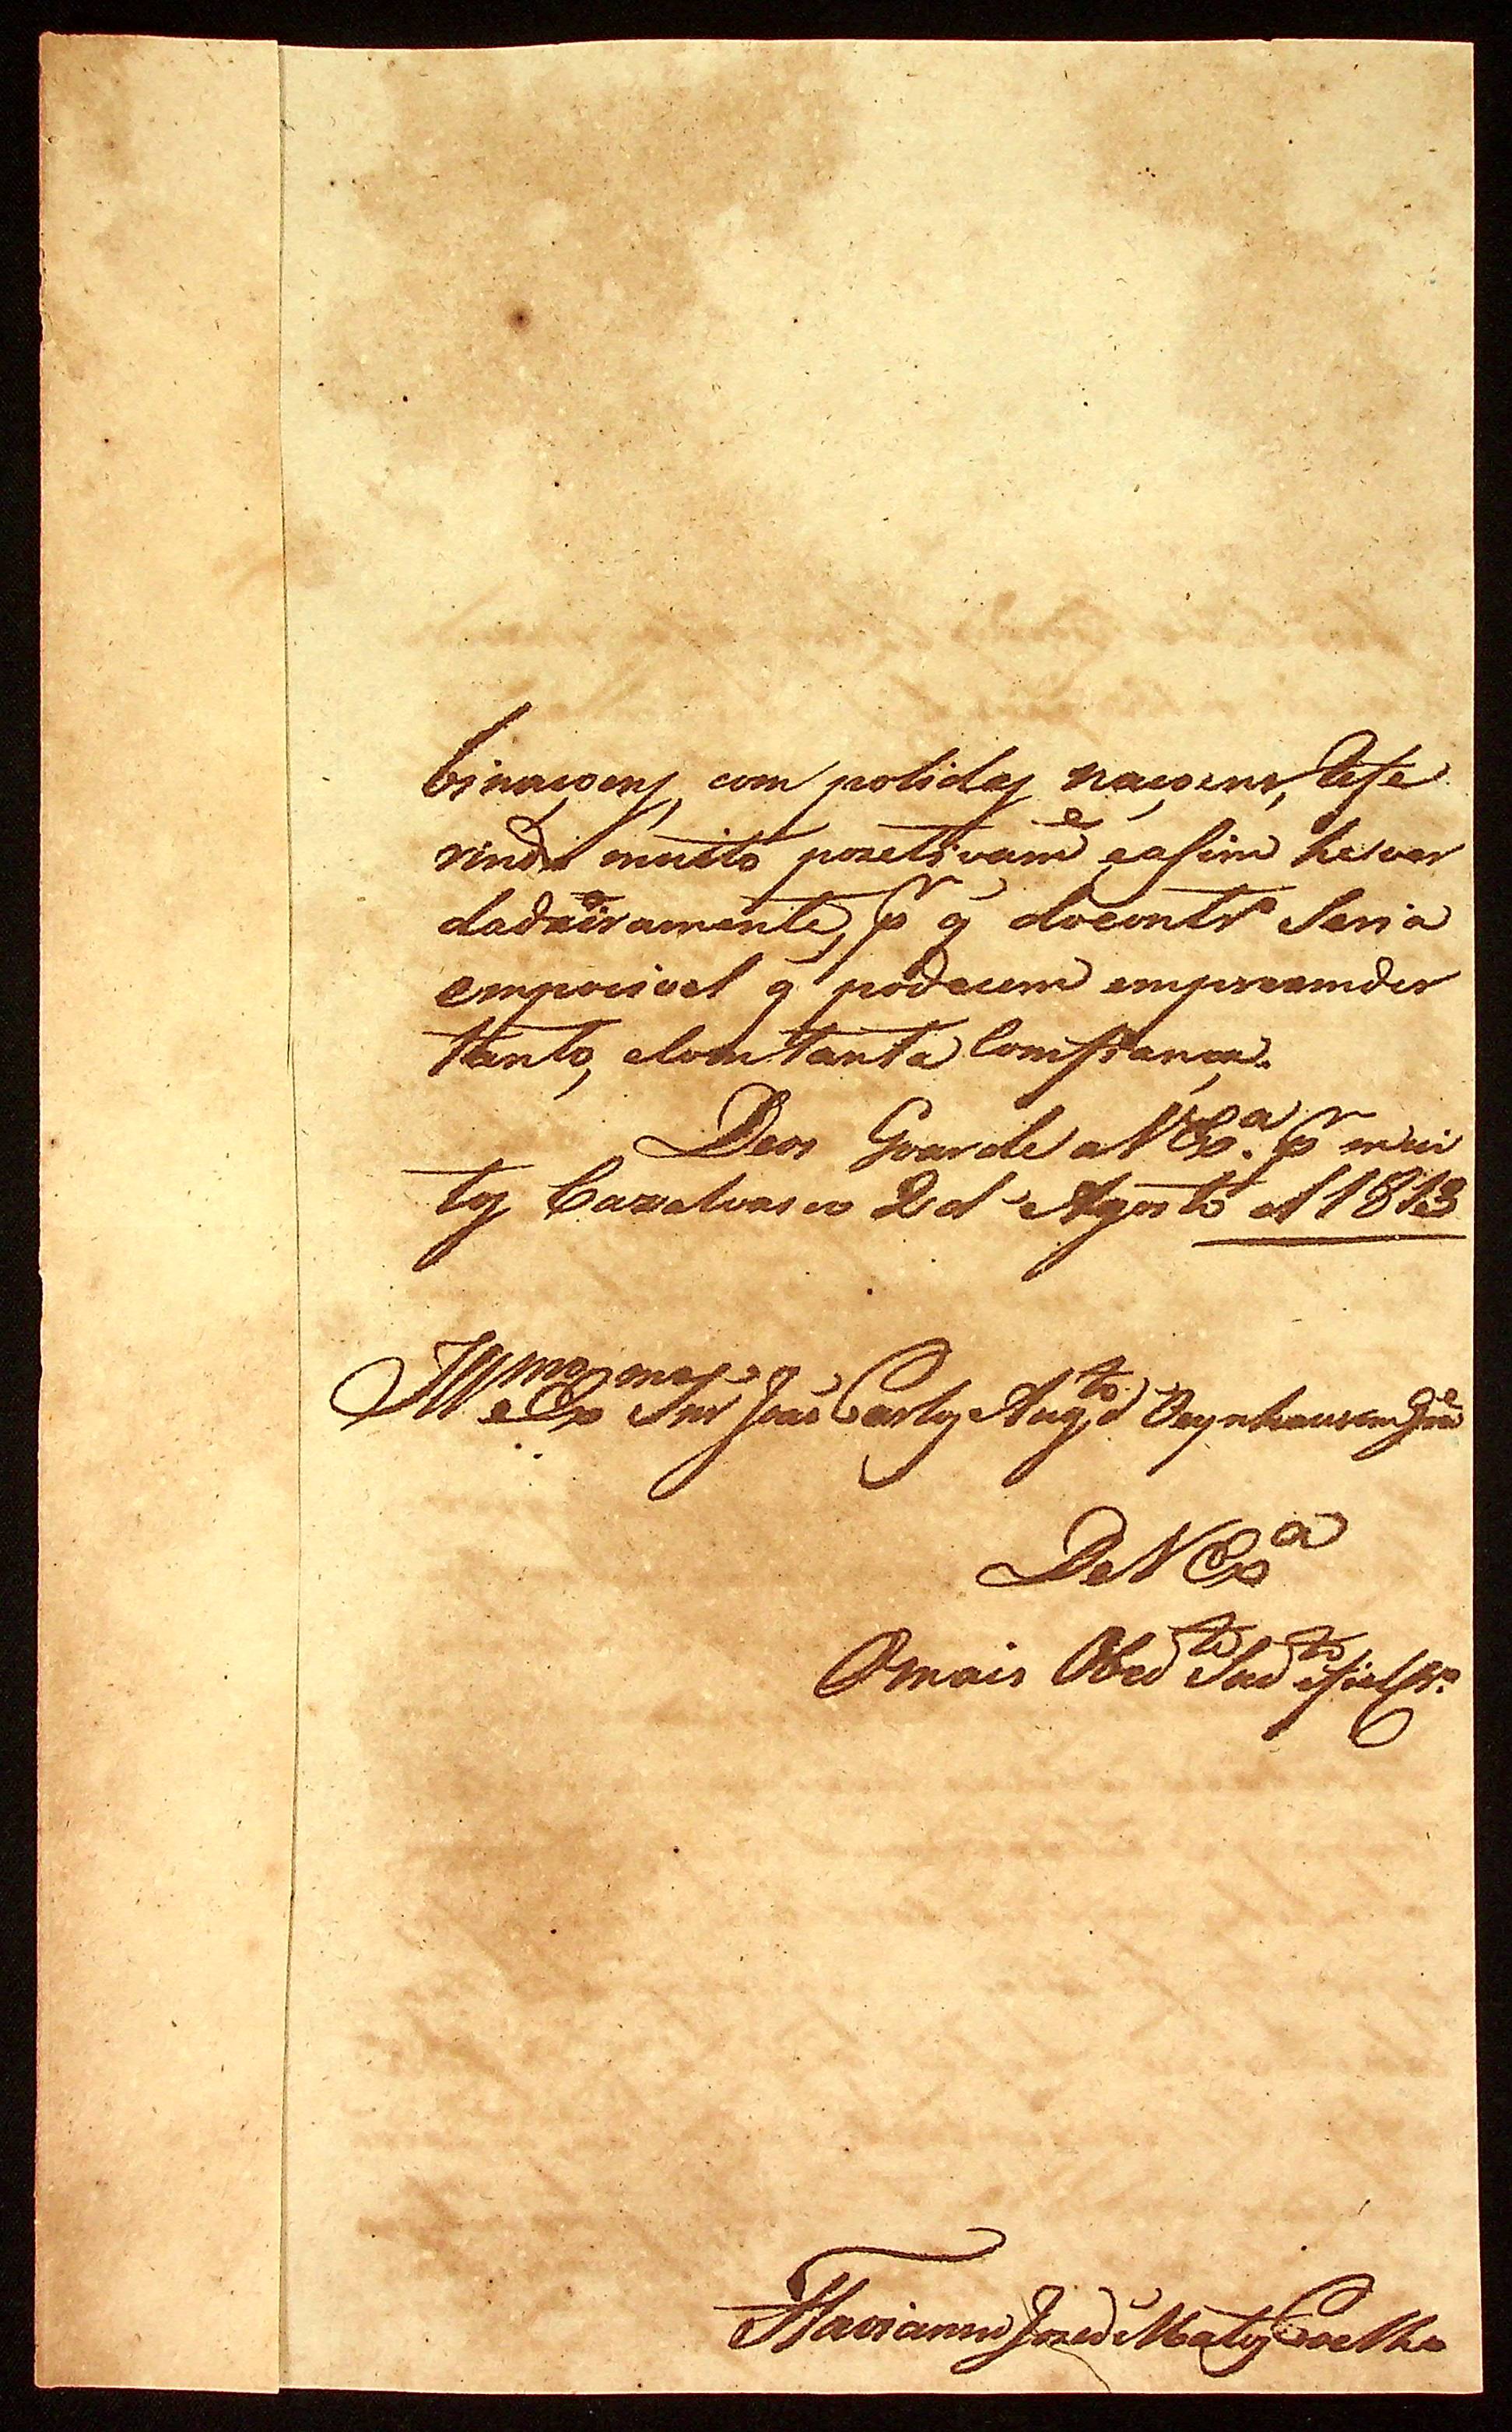 binaçoens, com polidas naçoens, Refe
rindo muito pozetivam.e easim he ver
dadeiramente, pr q̃ docontr.o Seria
empocivel q̃ podecem empreemder
tanto, eComtanta Comfiança.
Deos Guarde a V Ex.a pr mui
tos Cazalvasco 2 d' Agosto d' 1813
Illmo e Exmo Snr João Carlos Aug.to d' Oeynhausem
De V Ex.a
O mais Obed.te Sud.to e fiel Cr.o
Flavianno Joze d' Mattos Coelho